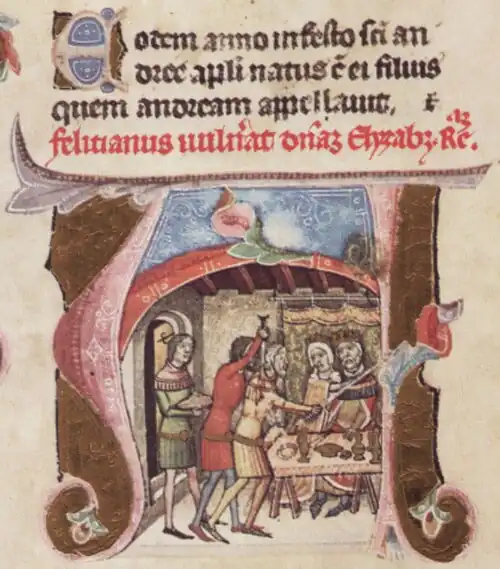 Eodem anno in festo sci an
dree apli natus e ei filius
quem andream appellauit. Et
felitianus uulnerat dnaz Elyzabz. Re.